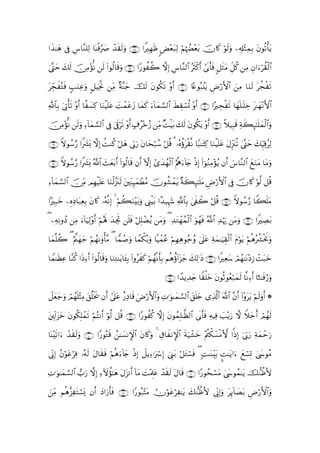 يَأْتُونَ بِمِثْلِهِۦ وَلَوْ كَانَ بَعْضُهُمْ لِبَعْضٍ ظَهِيرًا ۝ وَلَقَدْ صَرَّفْنَا لِلنَّاسِ فِى هَٰذَا
ٱلْقُرْءَانِ مِن كُلِّ مَثَلٍ فَأَبَىٰٓ أَكْثَرُ ٱلنَّاسِ إِلَّا كُفُورًا ۝ وَقَالُوا۟ لَن نُّؤْمِنَ لَكَ حَتَّىٰ
تَفْجُرَ لَنَا مِنَ ٱلْأَرْضِ يَنۢبُوعًا ۝ أَوْ تَكُونَ لَكَ جَنَّةٌ مِّن نَّخِيلٍ وَعِنَبٍ فَتُفَجِّرَ
ٱلْأَنْهَٰرَ خِلَٰلَهَا تَفْجِيرًا ۝ أَوْ تُسْقِطَ ٱلسَّمَآءَ كَمَا زَعَمْتَ عَلَيْنَا كِسَفًا أَوْ تَأْتِىَ بِٱللَّهِ
وَٱلْمَلَٰٓئِكَةِ قَبِيلًا ۝ أَوْ يَكُونَ لَكَ بَيْتٌ مِّن زُخْرُفٍ أَوْ تَرْقَىٰ فِى ٱلسَّمَآءِ وَلَن نُّؤْمِنَ
لِرُقِيِّكَ حَتَّىٰ تُنَزِّلَ عَلَيْنَا كِتَٰبًا نَّقْرَؤُهُۥ ۗ قُلْ سُبْحَانَ رَبِّى هَلْ كُنتُ إِلَّا بَشَرًا رَّسُولًا ۝
وَمَا مَنَعَ ٱلنَّاسَ أَن يُؤْمِنُوٓا۟ إِذْ جَآءَهُمُ ٱلْهُدَىٰٓ إِلَّآ أَن قَالُوٓا۟ أَبَعَثَ ٱللَّهُ بَشَرًا رَّسُولًا ۝
قُل لَّوْ كَانَ فِى ٱلْأَرْضِ مَلَٰٓئِكَةٌ يَمْشُونَ مُطْمَئِنِّينَ لَنَزَّلْنَا عَلَيْهِم مِّنَ ٱلسَّمَآءِ
مَلَكًا رَّسُولًا ۝ قُلْ كَفَىٰ بِٱللَّهِ شَهِيدًۢا بَيْنِى وَبَيْنَكُمْ ۚ إِنَّهُۥ كَانَ بِعِبَادِهِۦ خَبِيرًۢا
بَصِيرًا ۝ وَمَن يَهْدِ ٱللَّهُ فَهُوَ ٱلْمُهْتَدِ ۖ وَمَن يُضْلِلْ فَلَن تَجِدَ لَهُمْ أَوْلِيَآءَ مِن دُونِهِۦ ۖ
وَنَحْشُرُهُمْ يَوْمَ ٱلْقِيَٰمَةِ عَلَىٰ وُجُوهِهِمْ عُمْيًا وَبُكْمًا وَصُمًّا ۖ مَّأْوَىٰهُمْ جَهَنَّمُ ۖ كُلَّمَا
خَبَتْ زِدْنَٰهُمْ سَعِيرًا ۝ ذَٰلِكَ جَزَآؤُهُم بِأَنَّهُمْ كَفَرُوا۟ بِـَٔايَٰتِنَا وَقَالُوٓا۟ أَءِذَا كُنَّا عِظَٰمًا
وَرُفَٰتًا أَءِنَّا لَمَبْعُوثُونَ خَلْقًا جَدِيدًا ۝
۞ أَوَلَمْ يَرَوْا۟ أَنَّ ٱللَّهَ ٱلَّذِى خَلَقَ ٱلسَّمَٰوَٰتِ وَٱلْأَرْضَ قَادِرٌ عَلَىٰٓ أَن يَخْلُقَ مِثْلَهُمْ وَجَعَلَ
لَهُمْ أَجَلًا لَّا رَيْبَ فِيهِ فَأَبَى ٱلظَّٰلِمُونَ إِلَّا كُفُورًا ۝ قُل لَّوْ أَنتُمْ تَمْلِكُونَ خَزَآئِنَ
رَحْمَةِ رَبِّىٓ إِذًا لَّأَمْسَكْتُمْ خَشْيَةَ ٱلْإِنفَاقِ ۚ وَكَانَ ٱلْإِنسَٰنُ قَتُورًا ۝ وَلَقَدْ ءَاتَيْنَا
مُوسَىٰ تِسْعَ ءَايَٰتٍۭ بَيِّنَٰتٍ ۖ فَسْـَٔلْ بَنِىٓ إِسْرَٰٓءِيلَ إِذْ جَآءَهُمْ فَقَالَ لَهُۥ فِرْعَوْنُ إِنِّى
لَأَظُنُّكَ يَٰمُوسَىٰ مَسْحُورًا ۝ قَالَ لَقَدْ عَلِمْتَ مَآ أَنزَلَ هَٰٓؤُلَآءِ إِلَّا رَبُّ ٱلسَّمَٰوَٰتِ
وَٱلْأَرْضِ بَصَآئِرَ وَإِنِّى لَأَظُنُّكَ يَٰفِرْعَوْنُ مَثْبُورًا ۝ فَأَرَادَ أَن يَسْتَفِزَّهُم مِّنَ